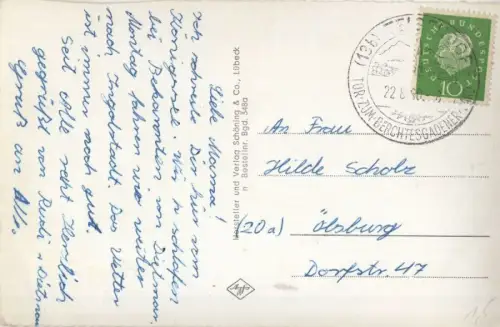 Liebe Mama!
Ich schreibe Dir hier vom
Königssee. Wir schlafen
bei Bekannten von Dietmar.
Montag fahren wir weiter
nach Ingolstadt. Das Wetter
ist immer noch gut.
Seit alle recht herzlich
gegrüßt von Rudi + Dietmar
Gruß an Alle.
Hersteller und Verlag Schöning & Co., Lübeck
Besteller. Bgd. 548a
DEUTSCHE BUNDESPOST
10
(13b)
22.8.
TOR ZUM BERCHTESGADENER
An Frau
Hilde Scholz
(20a) Ölsburg
Dorfstr. 47